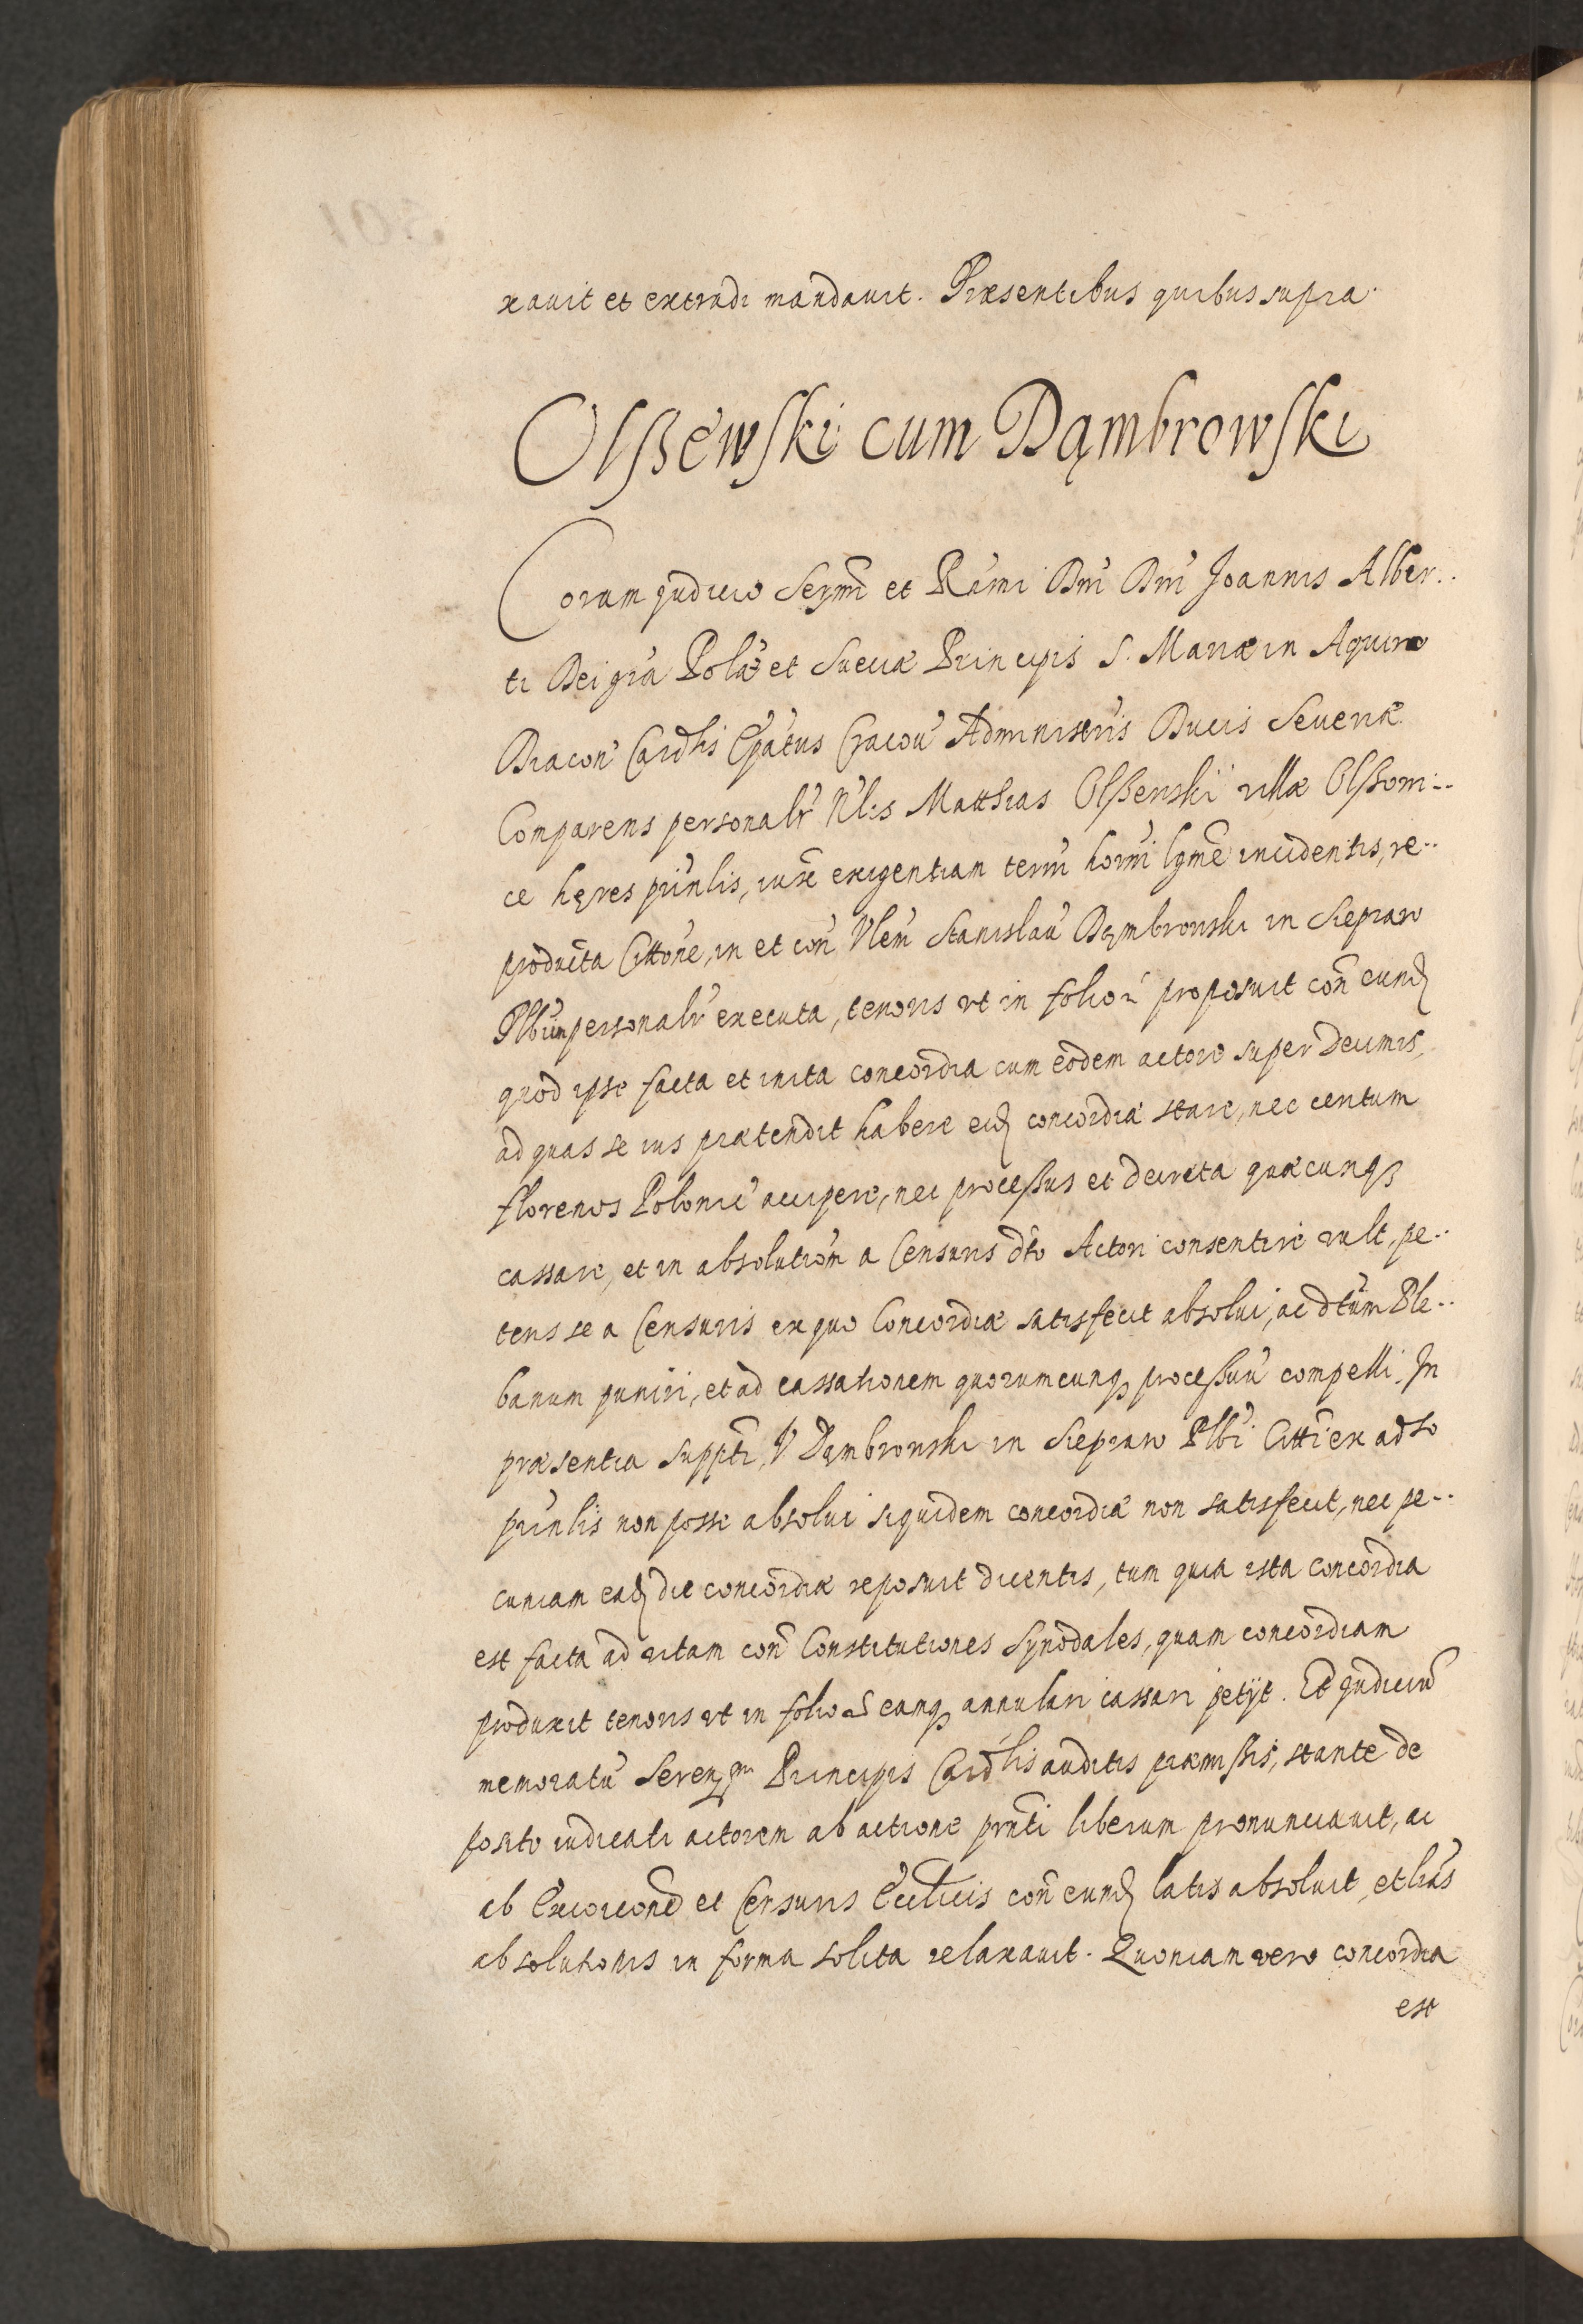 xauit et extradi mandauit. Præsentibus quibus supra.
Olßewski cum Dąmbrowski
Coram judicio Sermi et Rdmi Dni Dni Joannis Alber..
ti Dei gra Polæ et Sueciæ Principis S. Mariæ in Aquiro
Diacon Cardlis Epatus Cracou Administris Ducis Seueriæ
Comparens personalr Nlis Matthias Olßewski villæ Olßowi..
ce hæres prinlis, iuxe exigentiam termi horni lgme incidentis, re..
producta Cittone, in et con Vlem Stanislau Dąmbrowski in Siepraw
Plbum personalr executa, tenoris vt in folio proposuit con eund
quod ipse facta et inita concordia cum eodem actore super Decimis,
ad quas se ius prætendit habere eid concordiæ stare, nec centum
florenos Polonic accipere, nec processus et decreta quæcunq
cassare, et in absolutiom a Censuris dto Actori consentire vult, pe..
tens se a Censuris ex quo Concordiæ satisfecit absolui, ac dtum Ple..
banum puniri, et ad cassationem quorumcunq processuu compelli. In
præsentia suppti, V Dąmbrowski in Siepraw Plbi Citti ex adso
prinlis non posse absolui siquidem concordiæ non satisfecit, nec pe..
cuniam ead die concordiæ reposuit dicentis, tum quia ista concordia
est facta ad vitam con Constitutiones Synodales, quam concordiam
produxit tenoris vt in folio eanq annulari cassari petijt. Et judiciu
memoratu Serenmi Principis Cardlis auditis præmissis, stante de
posito iudicati actorem ab actione prnti liberum pronunciauit, ac
ab Excoicone et Censuris Ecclicis con eund latis absoluit, et lras
absolutionis in forma solita relaxauit. Quoniam vero concordia
est